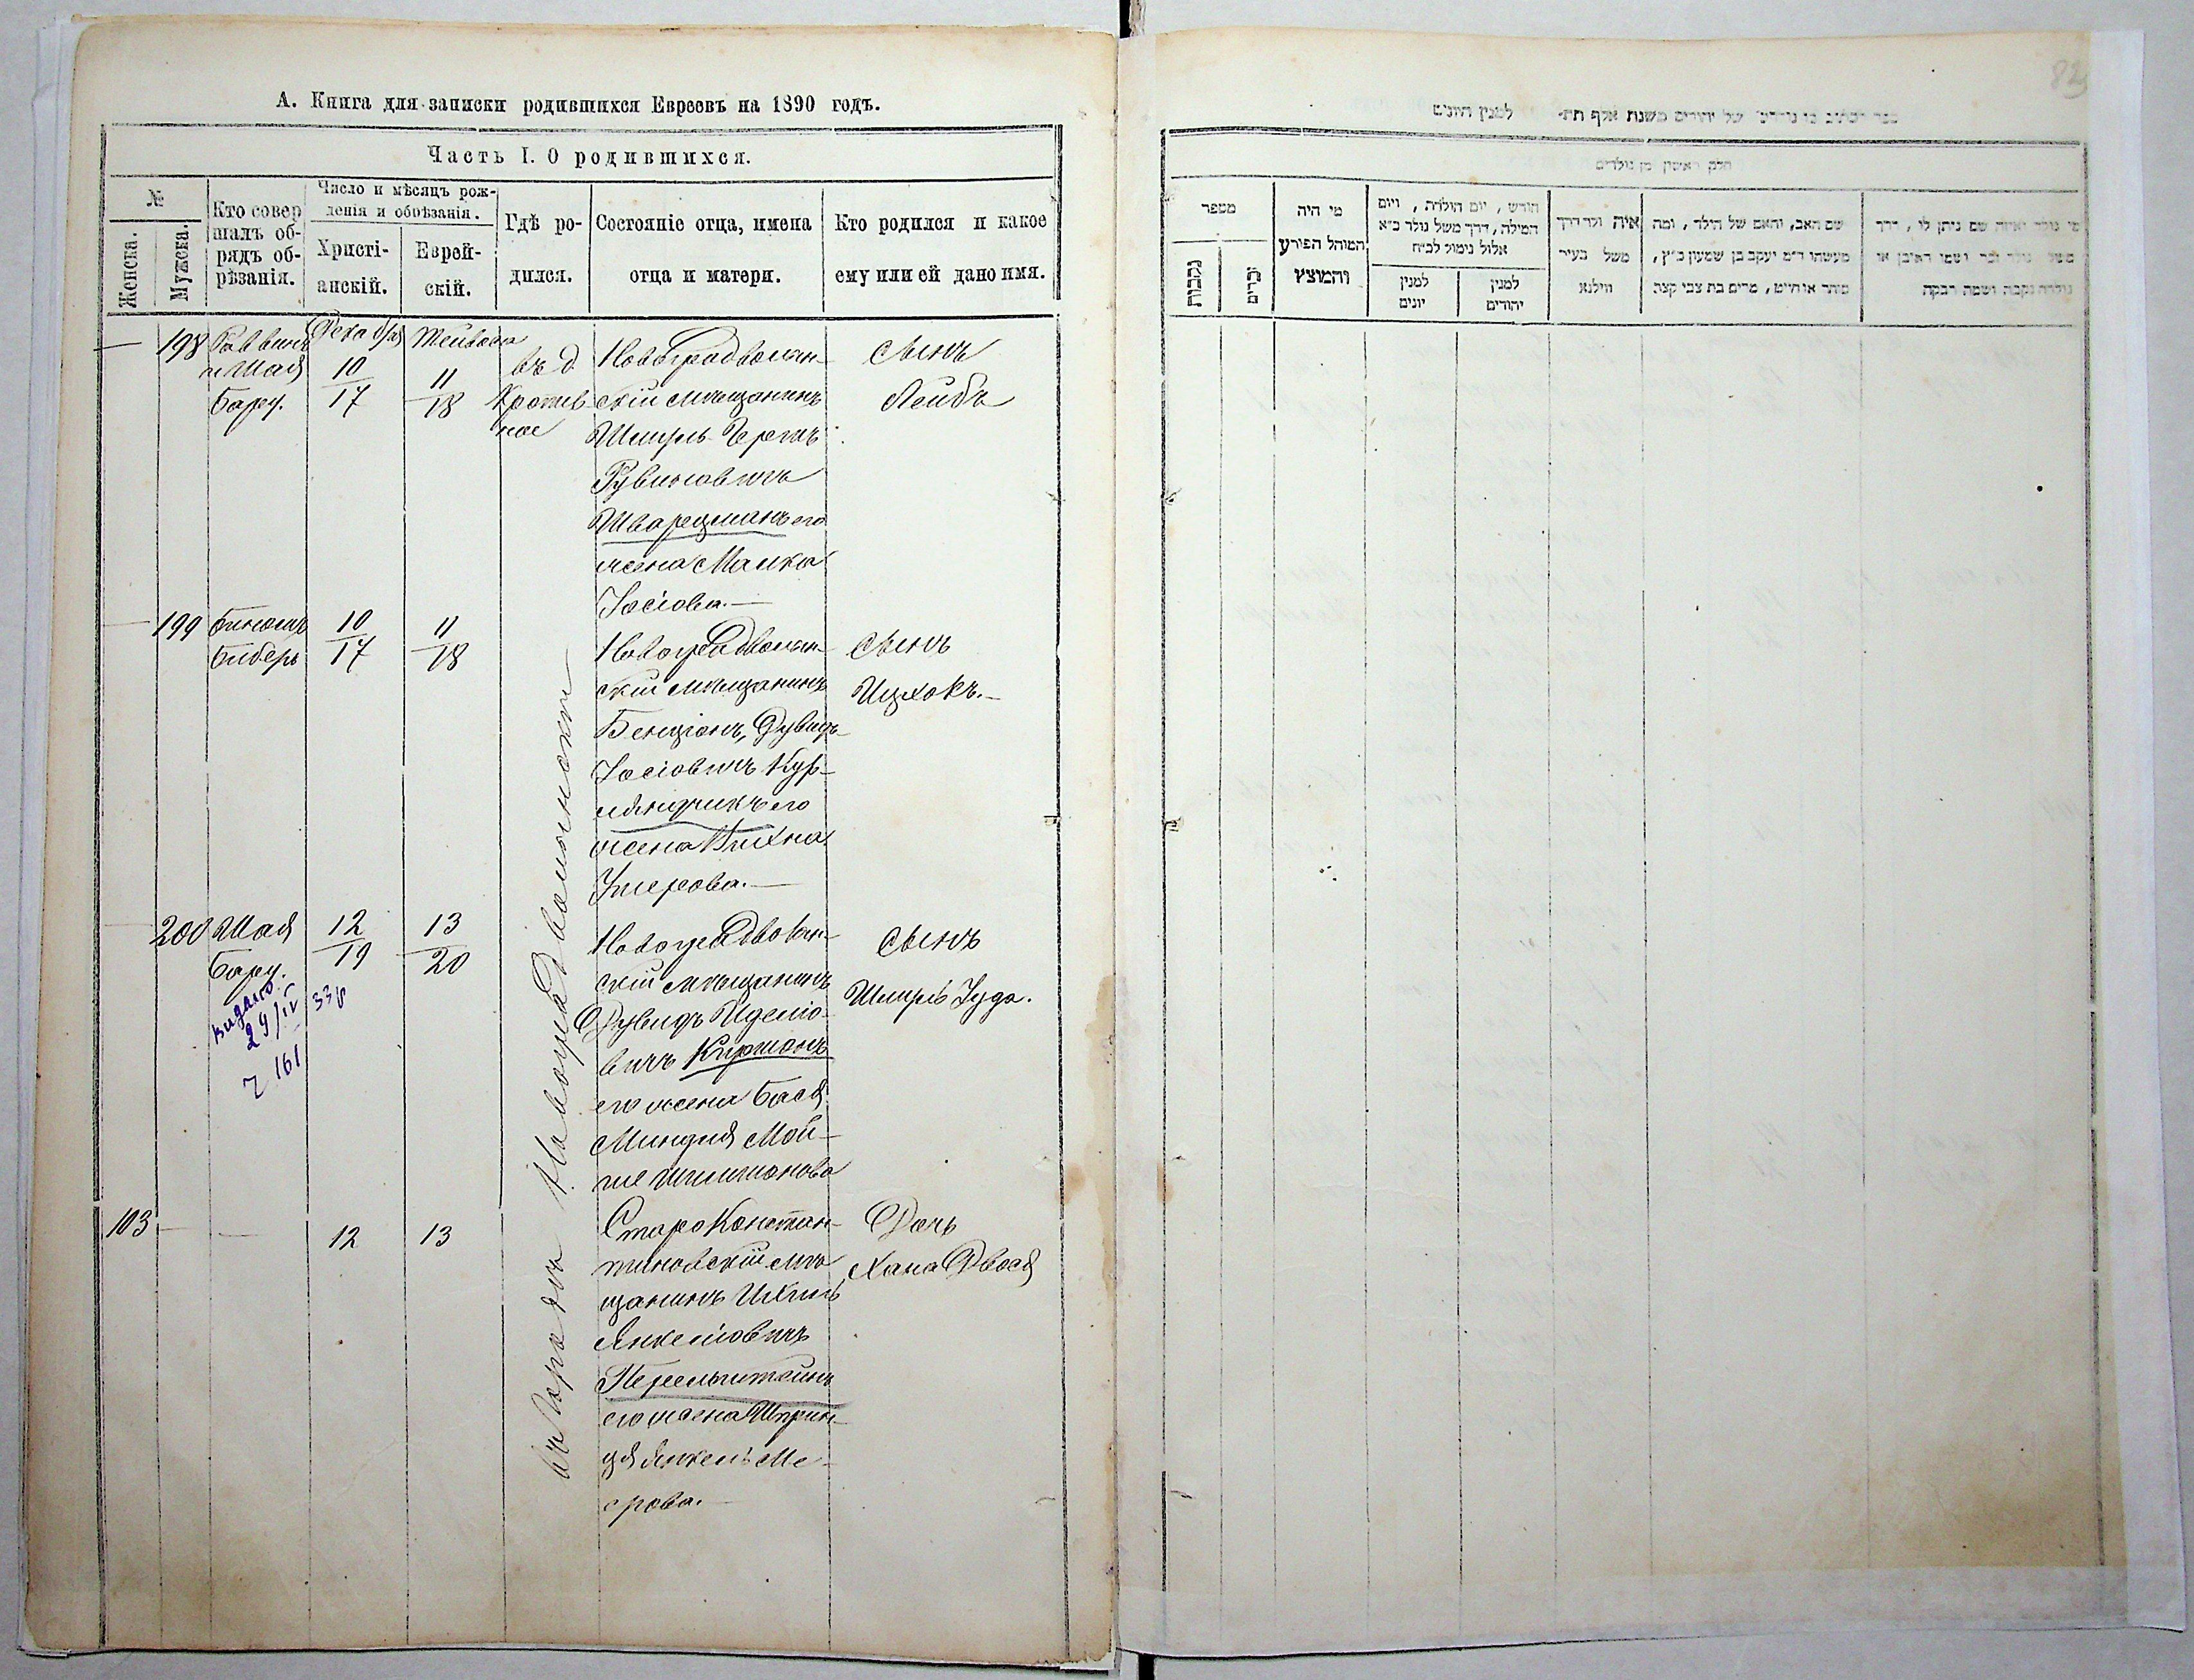 А. Книга для записки родившихся Евреевъ на 1890 годъ.
Часть I. О родившихся.
№
Женска.
Мужеска.
Кто совер
шалъ об-
рядъ об-
рѣзанія.
Число и мѣсяцъ рож-
денія и обрѣзанія.
Христі-
анскій.
Еврей-
скій.
Гдѣ ро-
дился.
Состояніе отца, имена
отца и матери.
Кто родился и какое
ему или ей дано имя.
198
Раввинъ
и Шая
Бару.
Декабря
10
17
Тейвеса
11
18
въ д
Новоградволын-
скій мѣщанинъ
Шмуль-Гершъ
Рувиновичъ
Шварцманъ его
жена Малка
Іосіова.—
Сынъ
Лейбъ
199
Биберъ
10
17
11
18
Новоградволын-
скій мѣщанинъ
Бенціонъ, Дувидъ
Іосіовичъ Кур-
ляндчикъ его
жена Вихна
Сынъ
Ицхокъ.—
200
Шая
Бару.
12
19
13
20
Новоградволын-
скій мѣщанинъ
Дувидъ Иделіо-
вичъ Киржонъ
его жена Бася
Миндля Мой-
Сынъ
Шмуль Іуда.
видано
29/IV 33р
161
103
12
13
Староконстан-
тиновскій мѣ
щанинъ Ихиль
Янкеліовичъ
Перельштейнъ
его жена Шприн-
ця Янкель Ме-
ерова.
Дочь
Хана Двося
въ Городѣ Новоградволынскѣ
82
ספר
לכתוב בו נולדים של יהודים משנת אלף תת׳ למנין היונים
חלק ראשון מן נולדים
מספר
נקבות
זכרים
מי היה
המוהל הפורע
והמוצץ
חודש, יום הולדת, ויום
המילה, דרך משל נולד כ״א
אלול נימול לכ״ח
למנין
יונים
למנין
יהודים
איה ולד דרך
משל בעיר
ווילנא
שם האב, והאם של הילד, ומה
מעשהו ד״מ יעקב בן שמעון כ״ץ,
סוחר או חייט, מרים בת צבי קצת
מי נולד ואיזה שם ניתן לו, דרך
משל נולד זכר ושמו ראובן או
נולדה נקבה ושמה רבקה